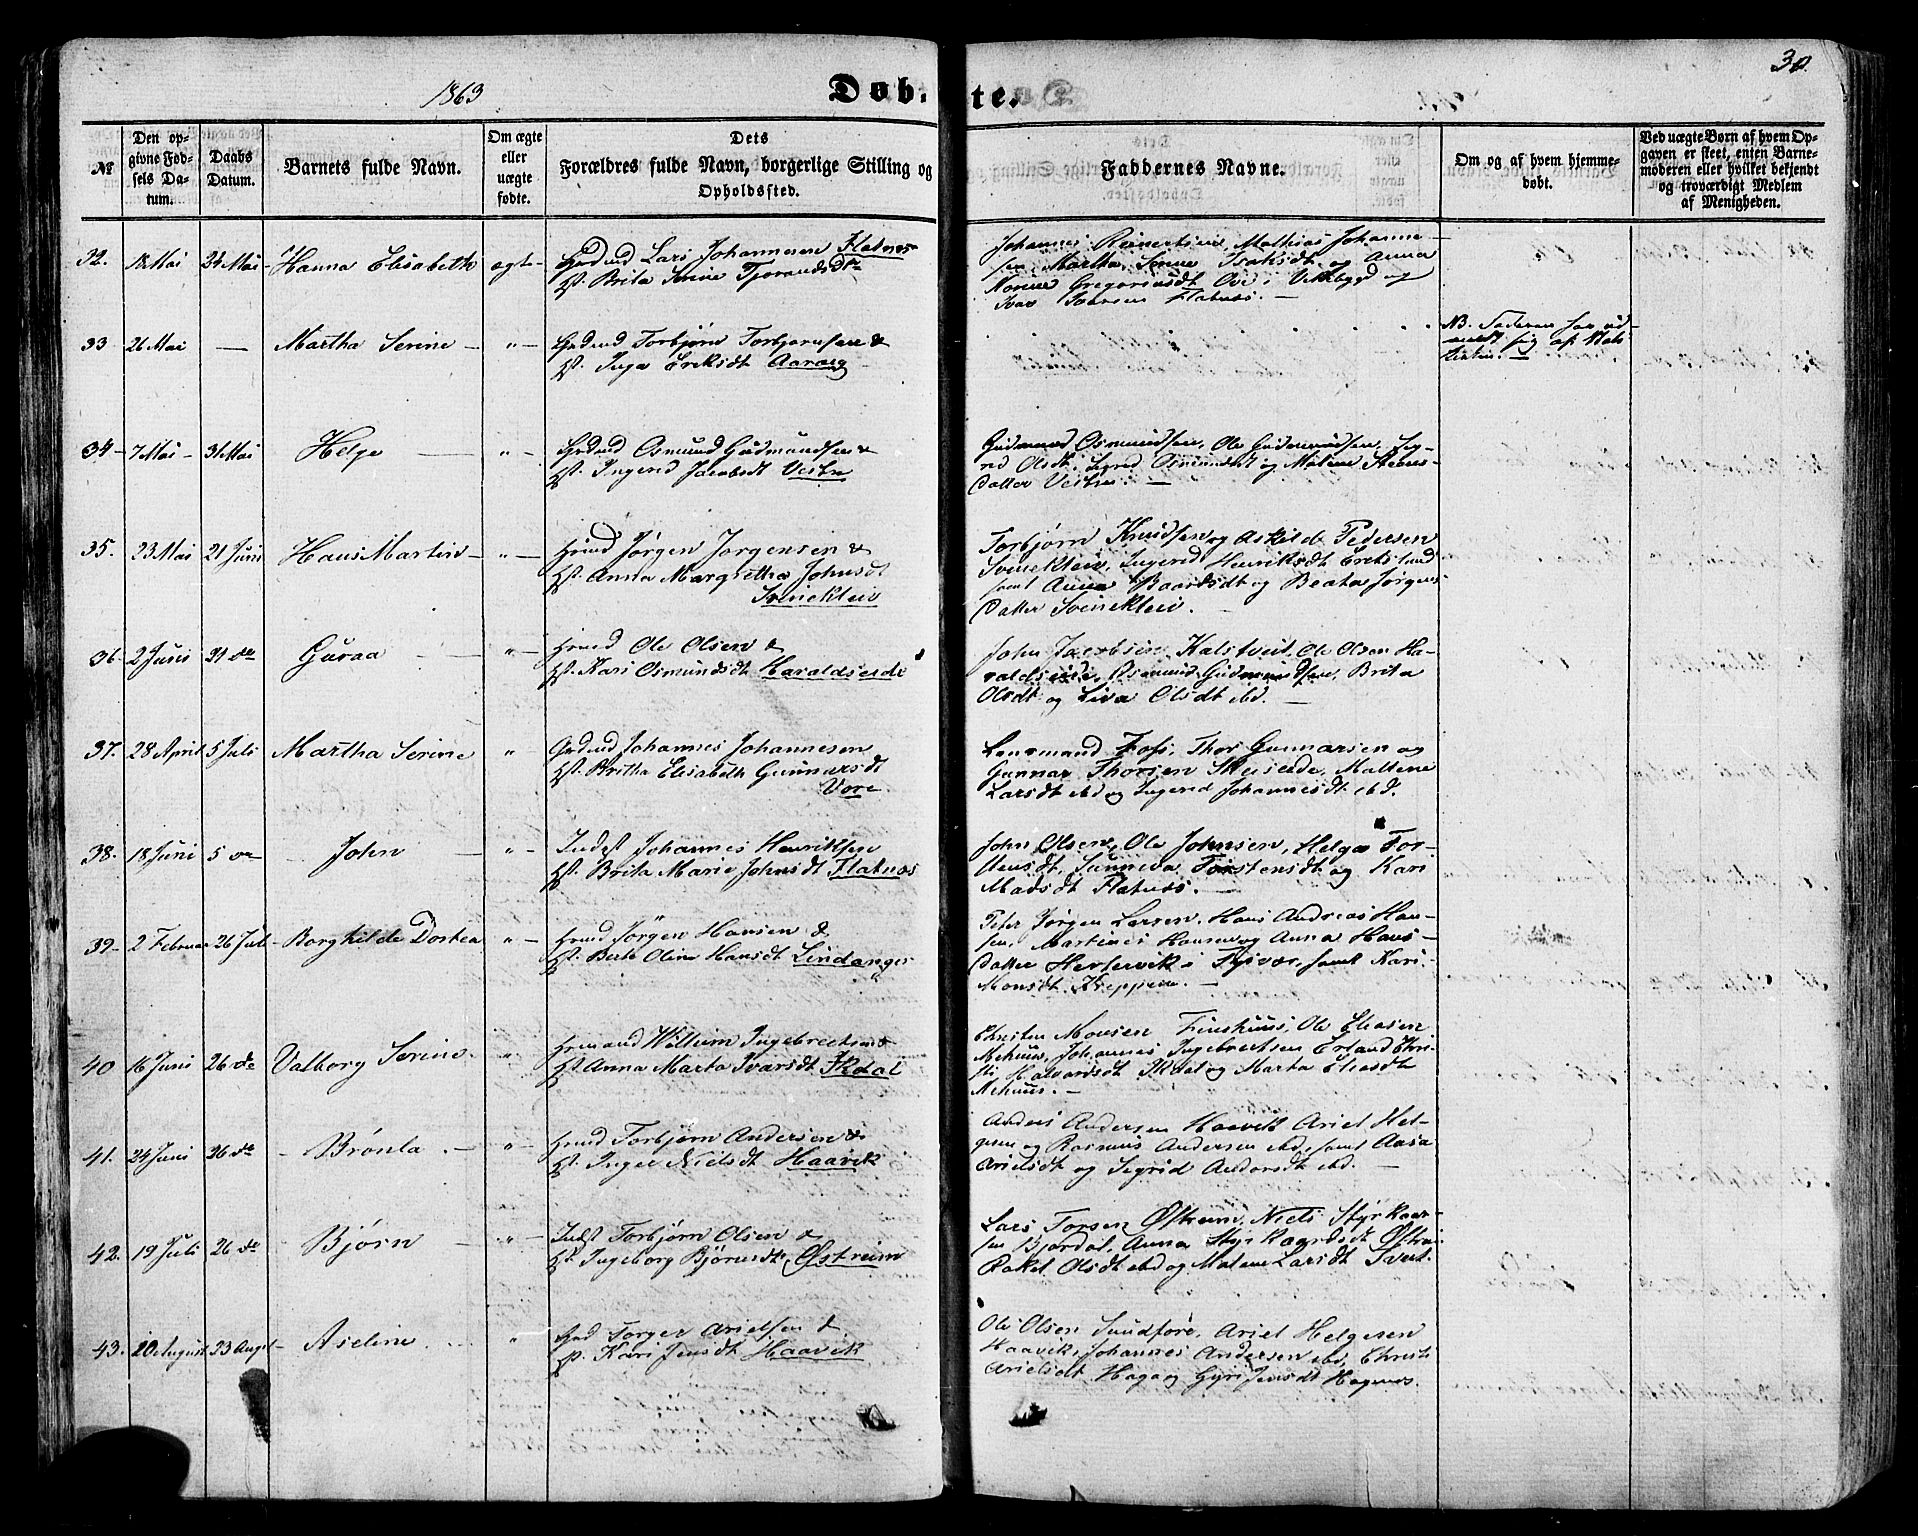 1863
Døb-te.
30.
№
Den op-
givne Fød-
sels Da-
tum.
Daabs
Datum.
Barnets fulde Navn.
Om ægte
eller
uægte
fødte.
Dets
Forældres fulde Navn, borgerlige Stilling og
Opholdssted.
Faddernes Navne.
Om og af hvem hjemme-
døbt.
Ved uægte Børn af hvem Op-
gaven er skeet, enten Barne-
moderen eller hvilket bekjendt
og troværdigt Medlem
af Menigheden.
32. 12 Mai 24 Mai Hanna Elisabeth ægt
Lars Johannesen Flatnes
Brita Serine Tjerandsdtr
Johannes Reinertsen, Mathias Johanne-
sen Martha Serine Isaksdt og Anna
Gregoriusdt Ove i Vikebygd og
Ivar Iversen Flatnes. —
33 26 Mai — Martha Serine — " —
Torbjørn Torbjørnsen &
Inga Eriksdt Aarvig
NB. Faderen har ud-
meldt sig af Stats-
kirken. —
34 — 7 Mai — 31 Mai Helge — " —
Osmund Gudmundsen &
Ingerid Jacobsdt Vestre
Gudmund Osmundsen, Ole Gudmundsen, Sig-
red Olsdt, Sigred Osmundsdt og Malene Steens-
datter Vestre. —
35. 23 Mai 21 Juni Hans Martin — " —
Jørgen Jørgensen &
Anna Margretha Johnsdt
Svinekleiv
Torbjørn Knudsen og Askilde Pedersen
Svinekleiv, Ingerid Henriksdt Eretsland
samt Anna Baardsdt og Beata Jørgens-
datter Svinekleiv.
36 2 Juni 21 do Guraa — " —
Ole Olsen &
Kari Osmundsdt Haraldseide
John Jacobsen Kalstveit, Ole Olsen Ha-
raldseide, Osmund Gudmundsen, Brita
Olsdt og Liva Olsdt ibd. —
37. 28 April 5 Juli Martha Serine "
Johannes Johannesen
Britha Elisabeth Gunnarsdt
Vore
Lensmand Foss, Thor Gunnarsen og
Gunnar Thorsen Skeiseide, Maltene
Larsdt ibd og Ingerid Johannesdt ibd.
38. 18 Juni 5 do John — " —
Indst Johannes Henriksen
Brita Marie Johnsdt Flatnæs
John Olsen, Ole Johnsen, Helga Tor-
stensdt, Sunneva Torstensdt og Kari
Madsdt Flatnæs. —
39 — 2 Februar 26 Juli Borghilde Dortea " —
Jørgen Hansen &
Berte Oline Hansdt Lindanger
Peter Jørgen Larsen, Hans Andreas Han-
sen, Martines Hansen og Anna Hans-
datter Hertervik i Tysvær, samt Kari
Monsdt Kreppen. —
40 16 Juni 26 do Valborg Serine. "
Willum Ingebretsen &
Anna Marta Ivarsdt Ikdal
Christen Monsen Finshuus, Ole Eliasen
Mehuus, Johannes Ingebretsen Erland Chri-
sti Halvardsdt Ikdal og Marta Eliasdt
Mehuus. —
41. 24 Juni 26 do — Brønla. — " —
Torbjørn Andersen &
Inger Nielsdt Haavik
Anders Andersen Haavik Ariel Hel-
gesen og Rasmus Andersen ibd, samt Aasa
Arielsdt og Sigrid Andersdt ibd. —
42. 19 Juli 26 do — Bjørn — " —
Indst Torbjørn Olsen &
Ingeborg Bjørnsdt Østreim
Lars Torsen Østreim, Niels Styrkaar-
sen Bjordal, Anna Styrkaardsdt Østrei
Rakel Olsdt ibd og Malene Larsdt
43. 20 August 23 Augst — Aseline "
Torger Arielsen &
Kari Jensdt Haavik
Ole Olsen Sundfore, Ariel Helgesen
Haavik, Johannes Andersen ibd, Christi
Arielsdt Haga og Gyri Jensdt Hagenes.